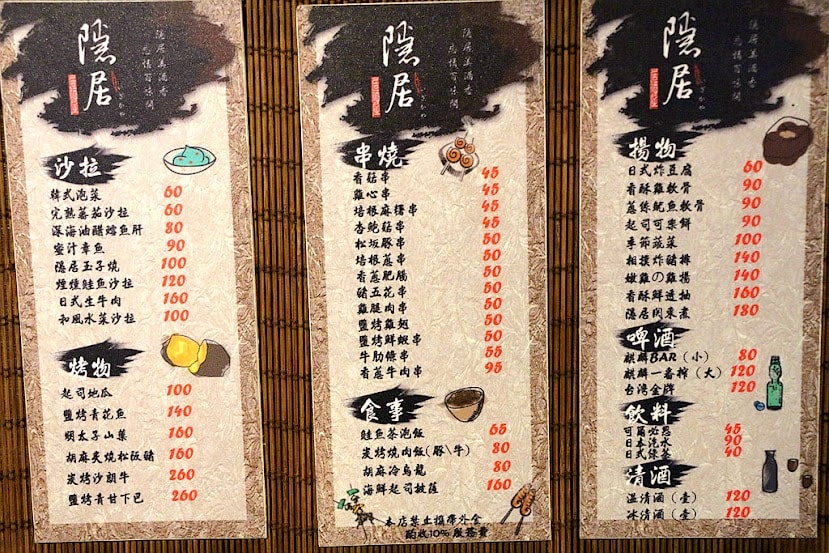 隱居
隱居美酒香
忘情百味閣
沙拉
韓式泡菜 60
完熟蕃茄沙拉 60
深海油醋鱈魚肝 80
蜜汁章魚 90
隱居玉子燒 100
煙燻鮭魚沙拉 120
日式生牛肉 160
和風水菜沙拉 100
烤物
起司地瓜 100
鹽烤青花魚 140
明太子山藥 160
胡麻炙燒松阪豬 160
炭烤沙朗牛 260
鹽烤青甘下巴 260
隱居
隱居美酒香
忘情百味閣
串燒
香菇串 45
雞心串 45
培根麻糬串 45
杏鮑菇串 45
松坂豚串 50
培根蔥串 50
香蔥肥腸 50
豬五花串 50
雞腿肉串 50
鹽烤雞翅 50
鹽烤鮮蝦串 50
牛肋條串 55
香蔥牛肉串 95
食事
鮭魚茶泡飯 65
炭烤燒肉飯(豚\牛) 80
胡麻冷烏龍 80
海鮮起司披薩 160
本店禁止攜帶外食
酌收10%服務費
隱居
隱居美酒香
忘情百味閣
揚物
日式炸豆腐 60
香酥雞軟骨 90
蔥絲魷魚軟骨 90
起司可樂餅 90
季節蔬菜 100
相撲炸豬排 140
嫩雞の雞揚 140
香酥鮮透抽 160
隱居関東煮 180
啤酒
麒麟BAR(小) 80
麒麟一番搾(大) 120
台灣金牌 120
飲料
可爾必思 45
日本汽水 90
日式綠茶 40
清酒
溫清酒(壺) 120
冰清酒(壺) 120